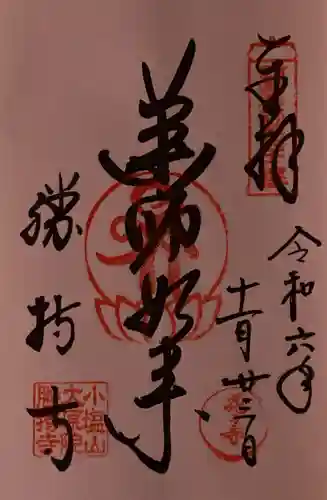 奉拝
令和六年
十一月廿三日
薬師如来
勝持寺
小塩山
大原院
勝持寺